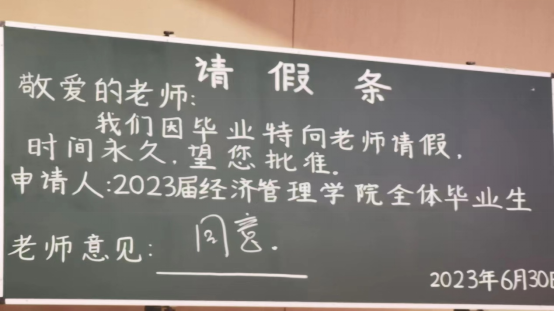 请假条
敬爱的老师:
我们因毕业特向老师请假,
时间永久,望您批准.
申请人:2023届经济管理学院全体毕业生
老师意见: 同意.
2023年6月30日